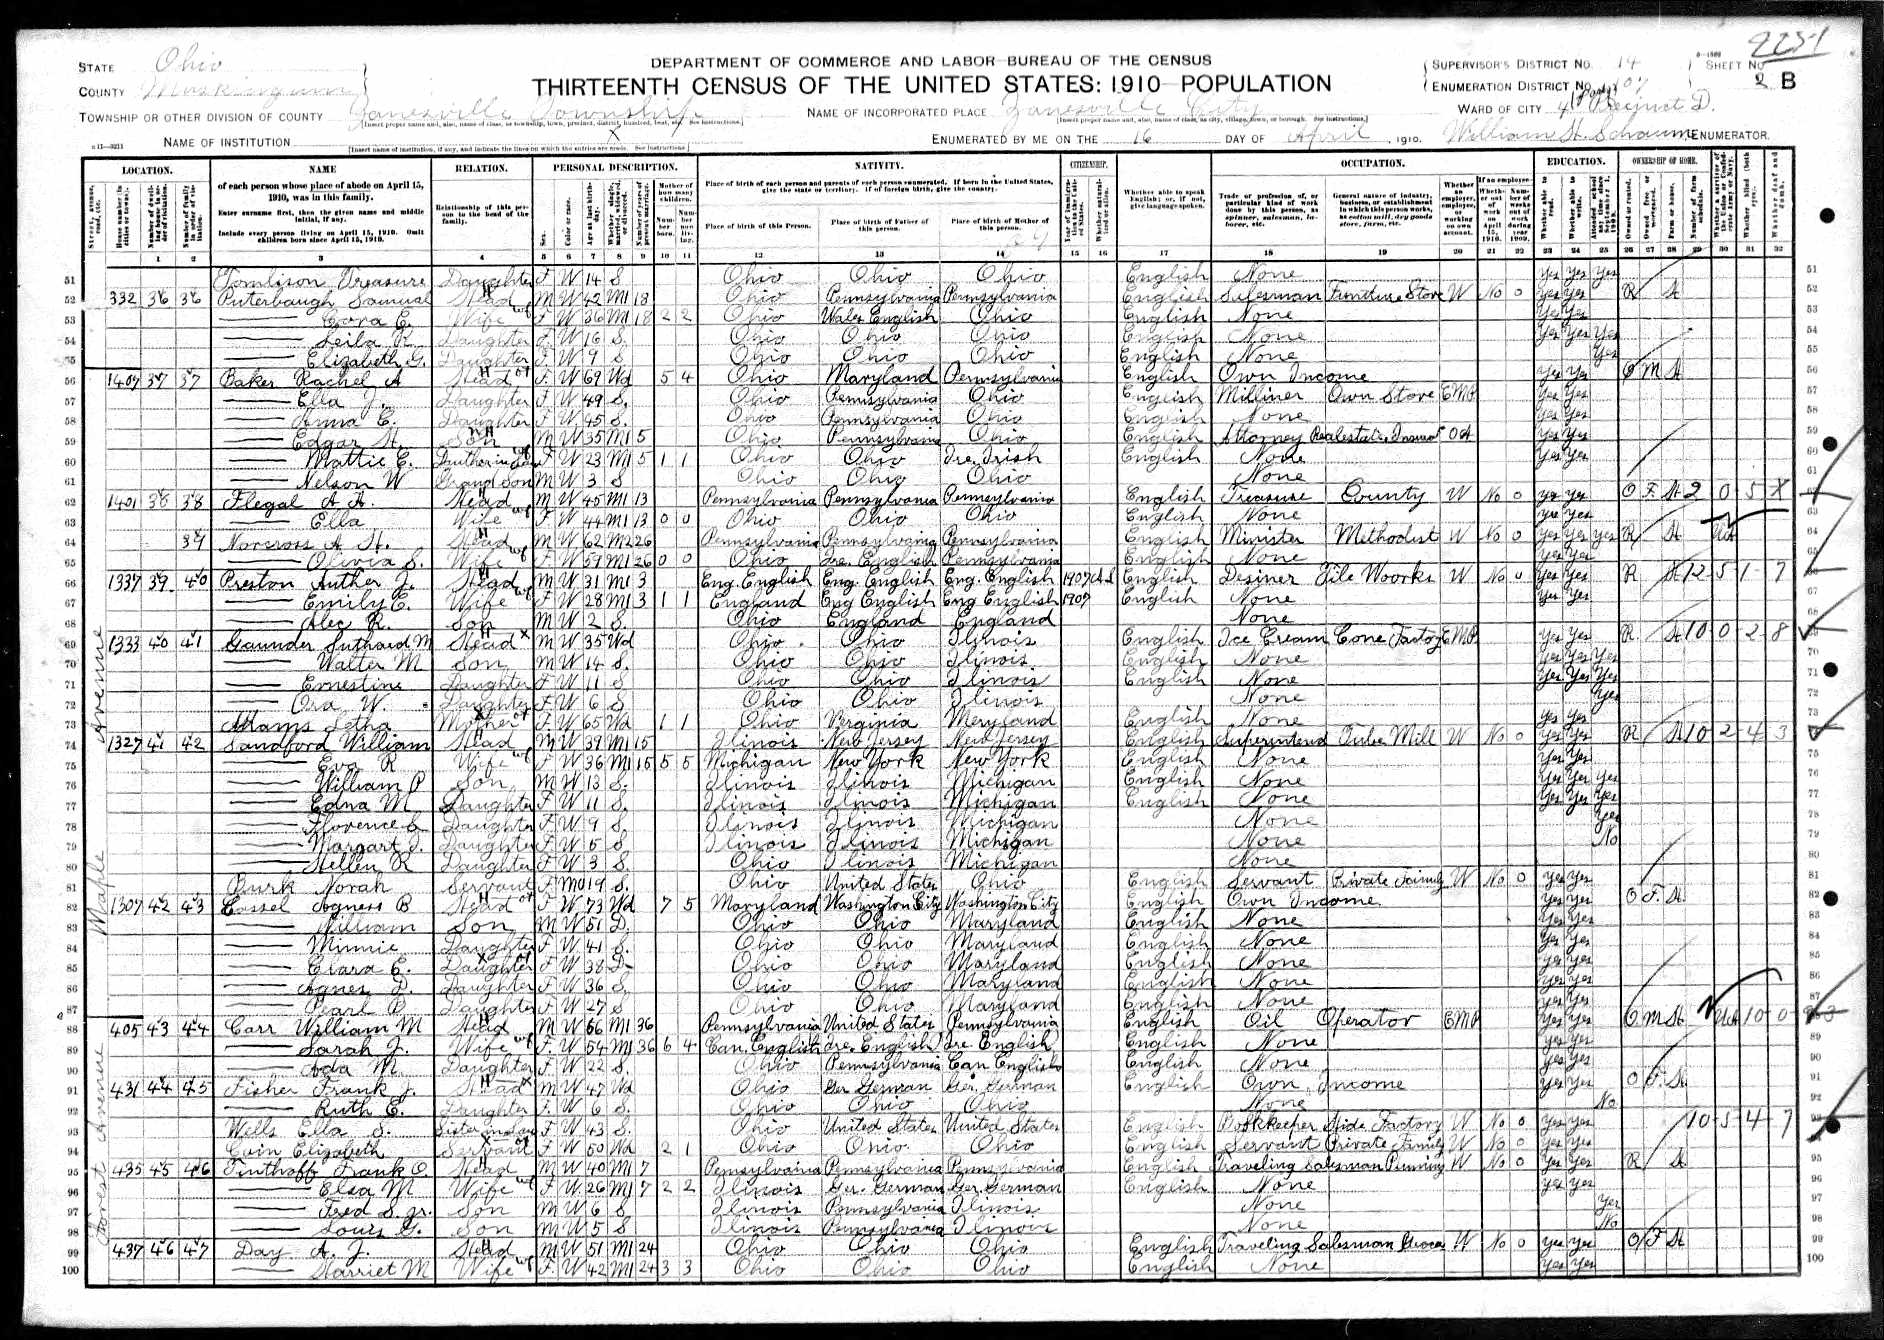 2251
STATE Ohio
COUNTY Muskingum
DEPARTMENT OF COMMERCE AND LABOR–BUREAU OF THE CENSUS
THIRTEENTH CENSUS OF THE UNITED STATES: 1910–POPULATION
SUPERVISOR'S DISTRICT NO. 14 SHEET NO.
ENUMERATION DISTRICT NO. 107 2 B
TOWNSHIP OR OTHER DIVISION OF COUNTY Zanesville Township
NAME OF INCORPORATED PLACE Zanesville City
WARD OF CITY 4 Precinct D.
NAME OF INSTITUTION X
ENUMERATED BY ME ON THE 16 DAY OF April, 1910. William H. Schaum ENUMERATOR.
LOCATION. NAME RELATION. PERSONAL DESCRIPTION. NATIVITY. CITIZENSHIP. OCCUPATION. EDUCATION. OWNERSHIP OF HOME.
of each person whose place of abode on April 15, 1910, was in this family.
Enter surname first, then the given name and middle initial, if any.
Include every person living on April 15, 1910. Omit children born since April 15, 1910.
Relationship of this person to the head of the family.
Place of birth of each person and parents of each person enumerated. If born in the United States, give the state or territory. If of foreign birth, give the country.
Place of birth of this Person. Place of birth of Father of this person. Place of birth of Mother of this person.
Whether able to speak English; or, if not, give language spoken.
1 2 3 4 5 6 7 8 9 10 11 12 13 14 15 16 17 18 19 20 21 22 23 24 25 26 27 28 29 30 31 32
51 Tomlison Treasure Daughter F W 14 S Ohio Ohio Ohio English None Yes Yes Yes 51
52 332 36 36 Puterbaugh Samuel Head M W 42 M1 18 Ohio Pennsylvania Pennsylvania English Salesman Furniture Store W No 0 Yes Yes R 52
53 — Cora E. Wife F W 36 M1 18 2 2 Ohio Wales English Ohio English None Yes Yes 53
54 — Leila R. Daughter F W 16 S. Ohio Ohio Ohio English None Yes Yes Yes 54
55 — Elizabeth G. Daughter F W 9 S Ohio Ohio Ohio English None Yes 55
56 1407 37 37 Baker Rachel A Head F W 69 Wd 5 4 Ohio Maryland Pennsylvania English Own Income Yes Yes O M H 56
57 — Ella J. Daughter F W 49 S. Ohio Pennsylvania Ohio English Milliner Own Store EMP Yes Yes 57
58 — Anna E. Daughter F W 45 S. Ohio Pennsylvania Ohio English None Yes Yes 58
59 — Edgar H. Son M W 35 M1 5 Ohio Pennsylvania Ohio English Attorney Realestate, Insur OA Yes Yes 59
60 — Mattie E. F W 23 M1 5 1 1 Ohio Ohio Ire. Irish English None Yes Yes 60
61 — Nelson W Grand Son M W 3 S Ohio Ohio Ohio None 61
62 1401 38 38 Flegal A. A. Head M W 45 M1 13 Pennsylvania Pennsylvania Pennsylvania English Treasure County W No 0 Yes Yes O F H 2 0 5 X
63 — Ella Wife F W 44 M1 13 0 0 Ohio Ohio Ohio English None Yes Yes 63
64 39 Norcross A. H. Head M W 62 M2 26 Pennsylvania Pennsylvania Pennsylvania English Minister Methodist W No 0 Yes Yes Yes R H UA 64
65 — Olivia S. Wife F W 59 M1 26 0 0 Ohio Ire. English Pennsylvania English None Yes Yes 65
66 1337 39 40 Preston Auther J. Head M W 31 M1 3 Eng. English Eng. English Eng. English 1907 Al English Desiner Tile Woorks W No 0 Yes Yes R H 12 5 1 7
67 — Emily E. Wife F W 28 M1 3 1 1 England Eng English Eng English 1907 English None Yes Yes 67
68 — Alec R. Son M W 2 S. Ohio England England None 68
69 1333 40 41 Gaunder Suthard M Head M W 35 Wd Ohio Ohio Ilinois English Ice Cream Cone Factory EMP Yes Yes R H 10 0 2 8
70 — Walter M Son M W 14 S. Ohio Ohio Ilinois English None Yes Yes Yes 70
71 — Ernestine Daughter F W 11 S Ohio Ohio Ilinois English None Yes Yes Yes 71
72 — Ora W. Daughter F W 6 S Ohio Ohio Ilinois None Yes 72
73 Adams Letha Mother F W 65 Wd 1 1 Ohio Verginia Meryland English None Yes Yes 73
74 1327 41 42 Sandford William Head M W 39 M1 15 Ilinois New Jersey New Jersey English Superintend Tube Mill W No 0 Yes Yes R H 10 2 4 3
75 — Eva R Wife F W 36 M1 15 5 5 Michigan New York New York English None Yes Yes 75
76 — William P Son M W 13 S. Ilinois Ilinois Michigan English None Yes Yes Yes 76
77 — Edna M Daughter F W 11 S. Ilinois Ilinois Michigan English None Yes Yes Yes 77
78 — Florence E Daughter F W 9 S Ilinois Ilinois Michigan None Yes 78
79 — Margart J. Daughter F W 5 S Ilinois Ilinois Michigan None No 79
80 — Hellen R Daughter F W 3 S. Ohio Ilinois Michigan None 80
81 Burk Norah Servant F Mu 19 S. Ohio United States Ohio English Servant Private Family W No 0 Yes Yes 81
82 1307 42 43 Cassel Agness B Head F W 73 Wd 7 5 Maryland Washington City Washington City English Own Income Yes Yes O F. H. 82
83 — William Son M W 51 D. Ohio Ohio Maryland English None Yes Yes 83
84 — Minnie Daughter F W 41 S. Ohio Ohio Maryland English None Yes Yes 84
85 — Clara E. Daughter F W 38 D Ohio Ohio Maryland English None Yes Yes 85
86 — Agnes D. Daughter F W 36 S. Ohio Ohio Maryland English None Yes Yes 86
87 — Pearl D Daughter F W 27 S Ohio Ohio Maryland English None Yes Yes 87
88 405 43 44 Carr William M Head M W 66 M1 36 Pennsylvania United States Pennsylvania English Oil Operator EMP Yes Yes O M H UA 10 0
89 — Sarah J. Wife F. W 54 M1 36 6 4 Can. English Ire. English Ire. English English None Yes Yes 89
90 — Ada M. Daughter F W 22 S. Ohio Pennsylvania Can English English None Yes Yes 90
91 431 44 45 Fisher Frank J. Head M W 47 Wd Ohio Ger German Ger. German English Own Income Yes Yes O F. H 91
92 — Ruth E. Daughter F. W 6 S. Ohio Ohio Ohio None No 92
93 Wells Ella S. Sister in law F W 43 S. Ohio United States United States English Bookkeeper Hide Factory W No 0 Yes Yes 10 5 4 7
94 Cain Elizabeth Servant F W 50 Wd 2 1 Ohio Ohio Ohio English Servant Private Family W No 0 Yes Yes 94
95 435 45 46 Tinthoff Frank O. Head M W 40 M1 7 Pennsylvania Pennsylvania Pennsylvania English Traveling Salesman W No 0 Yes Yes R H 95
96 — Elsa M Wife F W 26 M1 7 2 2 Ilinois Ger. German Ger. German English None Yes Yes 96
97 — Fred S. Jr. Son M W 6 S Ilinois Pennsylvania Ilinois None Yes 97
98 — Louis G. Son M W 5 S Ilinois Pennsylvania Ilinois None No 98
99 437 46 47 Day A. J. Head M W 51 M1 24 Ohio Ohio Ohio English Traveling Salesman W No 0 Yes Yes O F H 99
100 — Harriet M Wife F. W 42 M1 24 3 3 Ohio Ohio Ohio English None Yes Yes 100
Maple Avenue
Forest Avenue